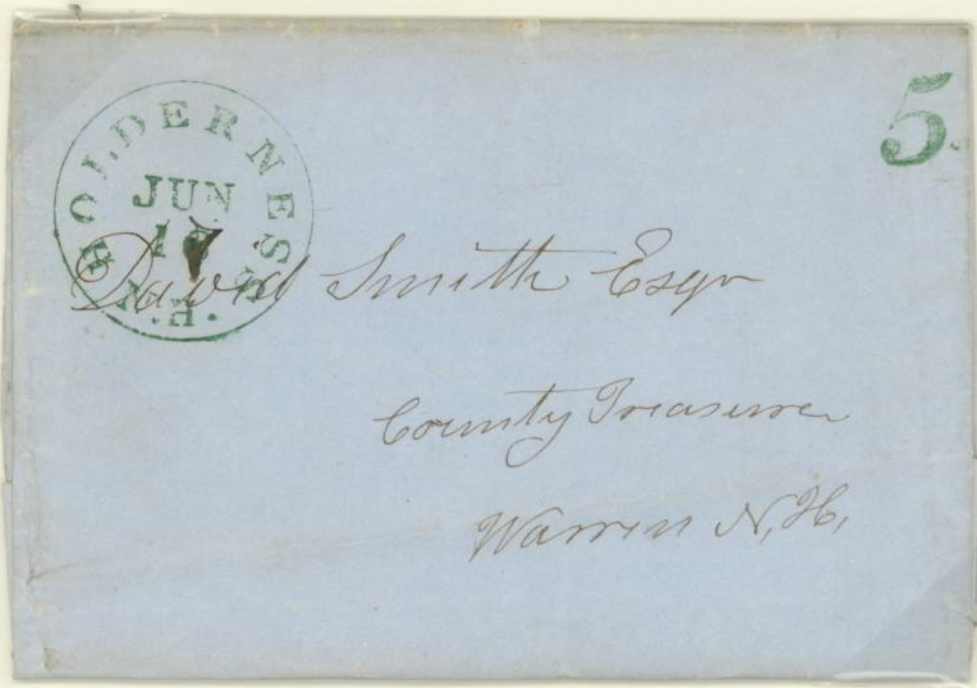 HOLDERNESS
N.H.
JUN
5
David Smith Esqr
County Treasurer
Warren N,H,